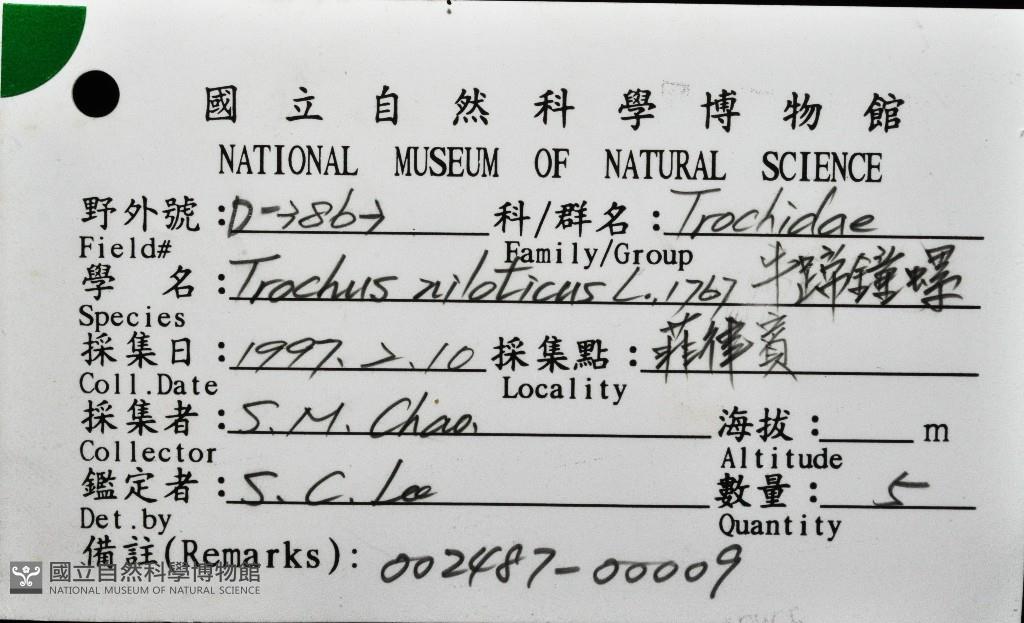 國立自然科學博物館
NATIONAL MUSEUM OF NATURAL SCIENCE
野外號: 科/群名: Trochidae
Field# Family/Group
學 名: Trochus niloticus L., 1767 牛蹄鐘螺
Species
採集日: 1997. 2. 10 採集點: 菲律賓
Coll.Date Locality
採集者: S. M. Chao. 海拔: m
Collector Altitude
鑑定者: S. C. Lee 數量: 5
Det.by Quantity
備註(Remarks): 002487-00009
國立自然科學博物館
NATIONAL MUSEUM OF NATURAL SCIENCE